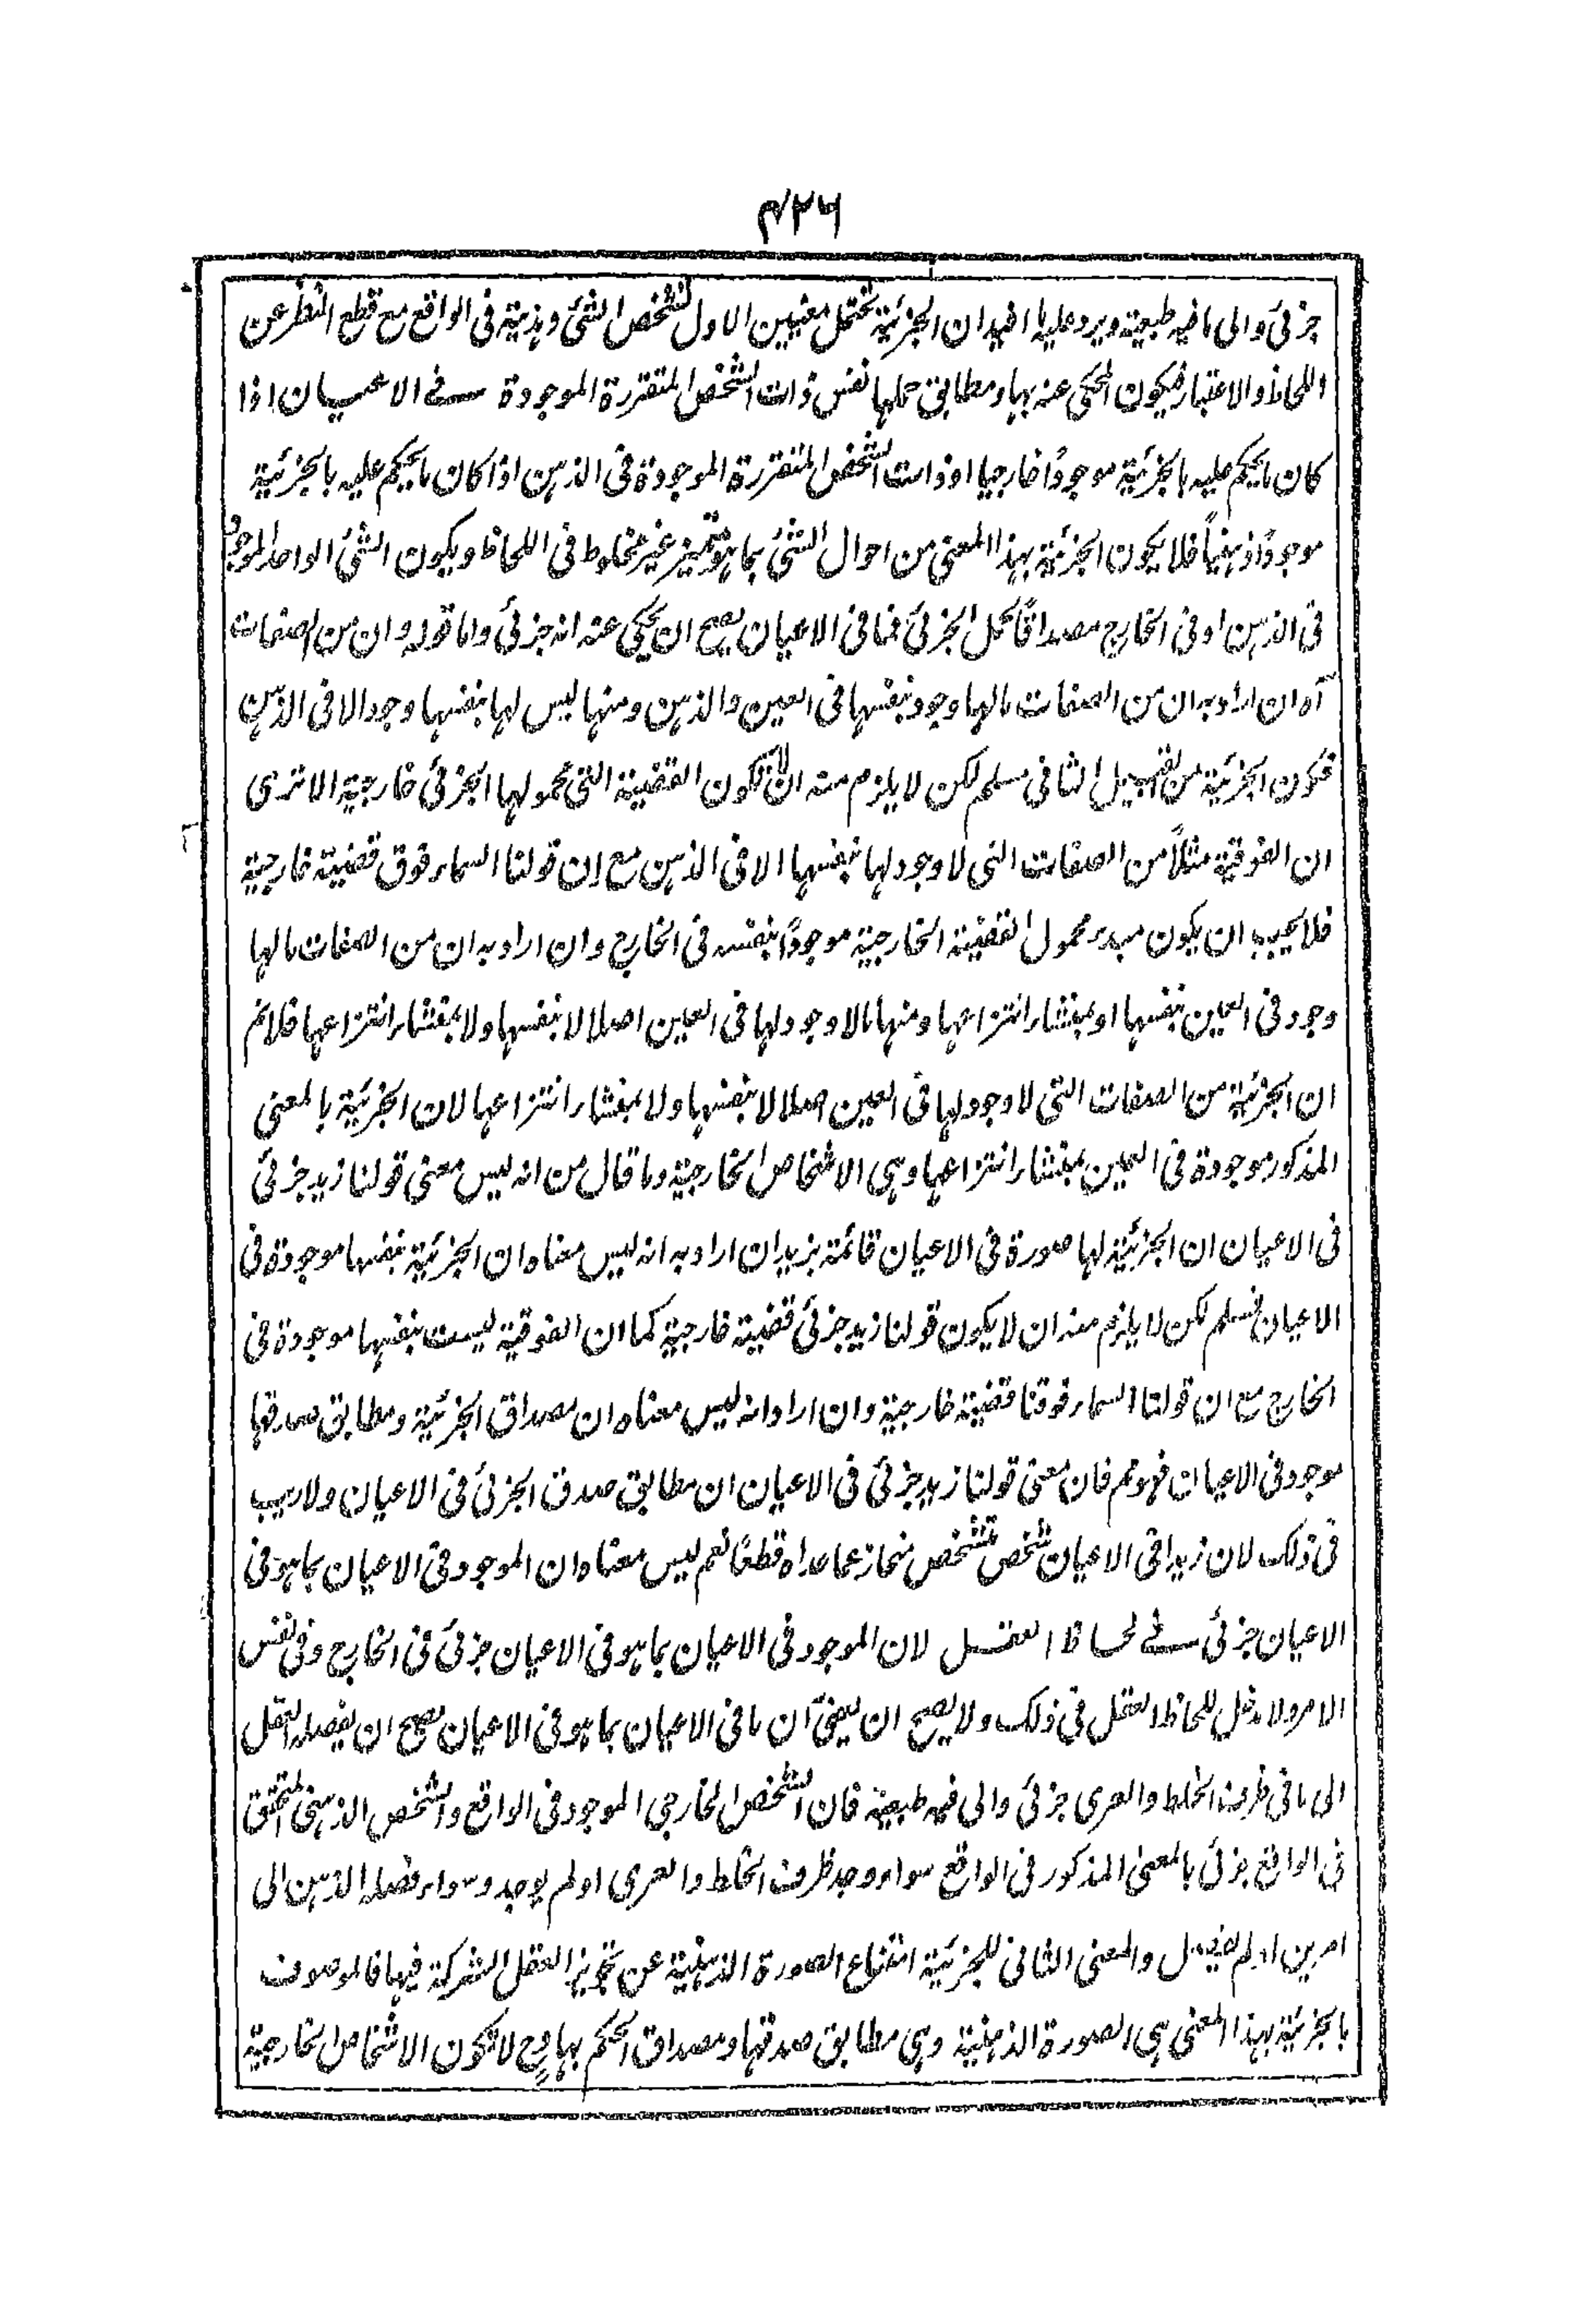 ۴۲۶
جزئی والی ما فیه طبیعیة ویرد علیه ما افید ان الجزئیة تحتمل معنیین الاول تشخص الشئ وہذیتہ فی الواقع مع قطع النظر عن
اللحاظ والاعتبار فیکون المحکی عنہ بہا ومطابق حملہا نفس ذات الشخص المتقررة الموجودة فی الاعیان اذا
کان ما یحکم علیہ بالجزئیة موجودًا خارجیا او ذات الشخص المتقررة الموجودة فی الذہن اذا کان ما یحکم علیہ بالجزئیة
موجودًا ذہنیاً فلا یکون الجزئیة بہذا المعنی من احوال الشئ بما ہو متمیز غیر مخلوط فی اللحاظ ویکون الشئ الواحد الموجود
فی الذہن او فی الخارج مصداقًا لحمل الجزئی فما فی الاعیان یصح ان یحکی عنہ انہ جزئی واما قولہ وان من الصفات
آہ ان اراد بہ ان من الصفات ما لہا وجود بنفسہا فی العین والذہن ومنہا لیس لہا بنفسہا وجود الا فی الذہن
فکون الجزئیة من القبیل الثانی مسلم لکن لا یلزم منہ ان لا تکون القضیة التی محمولہا الجزئی خارجیة الا تری
ان الفوقیة مثلاً من الصفات التی لا وجود لہا بنفسہا الا فی الذہن مع ان قولنا السماء فوق قضیة خارجیة
فلا یجب ان یکون مبدء محمول القضیة الخارجیة موجودًا بنفسہ فی الخارج وان اراد بہ ان من الصفات ما لہا
وجود فی العین بنفسہا او بمنشاء انتزاعہا ومنہا ما لا وجود لہا فی العین اصلا لا بنفسہا ولا بمنشاء انتزاعہا فلا نم
ان الجزئیة من الصفات التی لا وجود لہا فی العین اصلا لا بنفسہا ولا بمنشاء انتزاعہا لان الجزئیة بالمعنی
المذکور موجودة فی العین بمنشاء انتزاعہا وہی الاشخاص الخارجیة وما قال من انہ لیس معنی قولنا زید جزئی
فی الاعیان ان الجزئیة لہا صورة فی الاعیان قائمة بزید ان اراد بہ انہ لیس معناہ ان الجزئیة بنفسہا موجودة فی
الاعیان فمسلم لکن لا یلزم منہ ان لا یکون قولنا زید جزئی قضیة خارجیة کما ان الفوقیة لیست بنفسہا موجودة فی
الخارج مع ان قولنا السماء فوقنا قضیة خارجیة وان اراد انہ لیس معناہ ان مصداق الجزئیة ومطابق صدقہا
موجود فی الاعیان فہو مم فان معنی قولنا زید جزئی فی الاعیان ان مطابق صدق الجزئی فی الاعیان ولا ریب
فی ذلک لان زیدا فی الاعیان شخص متشخص منحاز عما عداہ قطعًا نعم لیس معناہ ان الموجود فی الاعیان بما ہو فی
الاعیان جزئی فی لحاظ العقل لان الموجود فی الاعیان بما ہو فی الاعیان جزئی فی الخارج وفی نفس
الامر ولا دخل للحاظ العقل فی ذلک ولا یصح ان یعنی ان ما فی الاعیان بما ہو فی الاعیان یصح ان یفصلہ العقل
الی ما فی ظرف الخلط والعری جزئی والی فیہ طبیعیة فان الشخص الخارجی الموجود فی الواقع والشخص الذہنی المتحقق
فی الواقع جزئی بالمعنی المذکور فی الواقع سواء وجد ظرف الخلط والعری او لم یوجد وسواء فصلہ الذہن الی
امرین او لم یفصل والمعنی الثانی للجزئیة امتناع الصورة الذہنیة عن تجویز العقل الشرکة فیہا فالموصوف
بالجزئیة بہذا المعنی ہی الصورة الذہنیة وہی مطابق صدقہا ومصداق الحکم بہا وح لا یکون الاشخاص الخارجیة